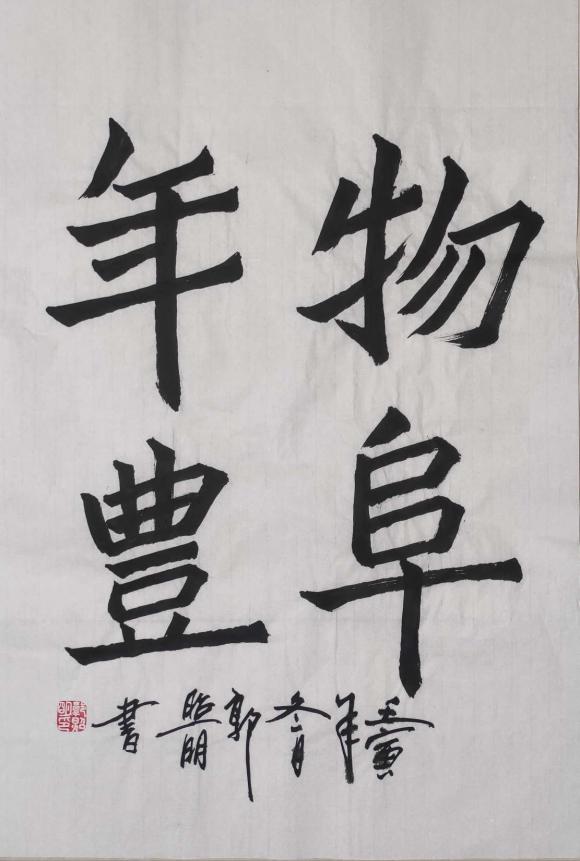 物阜
年豊
壬寅年冬月郭昭明書